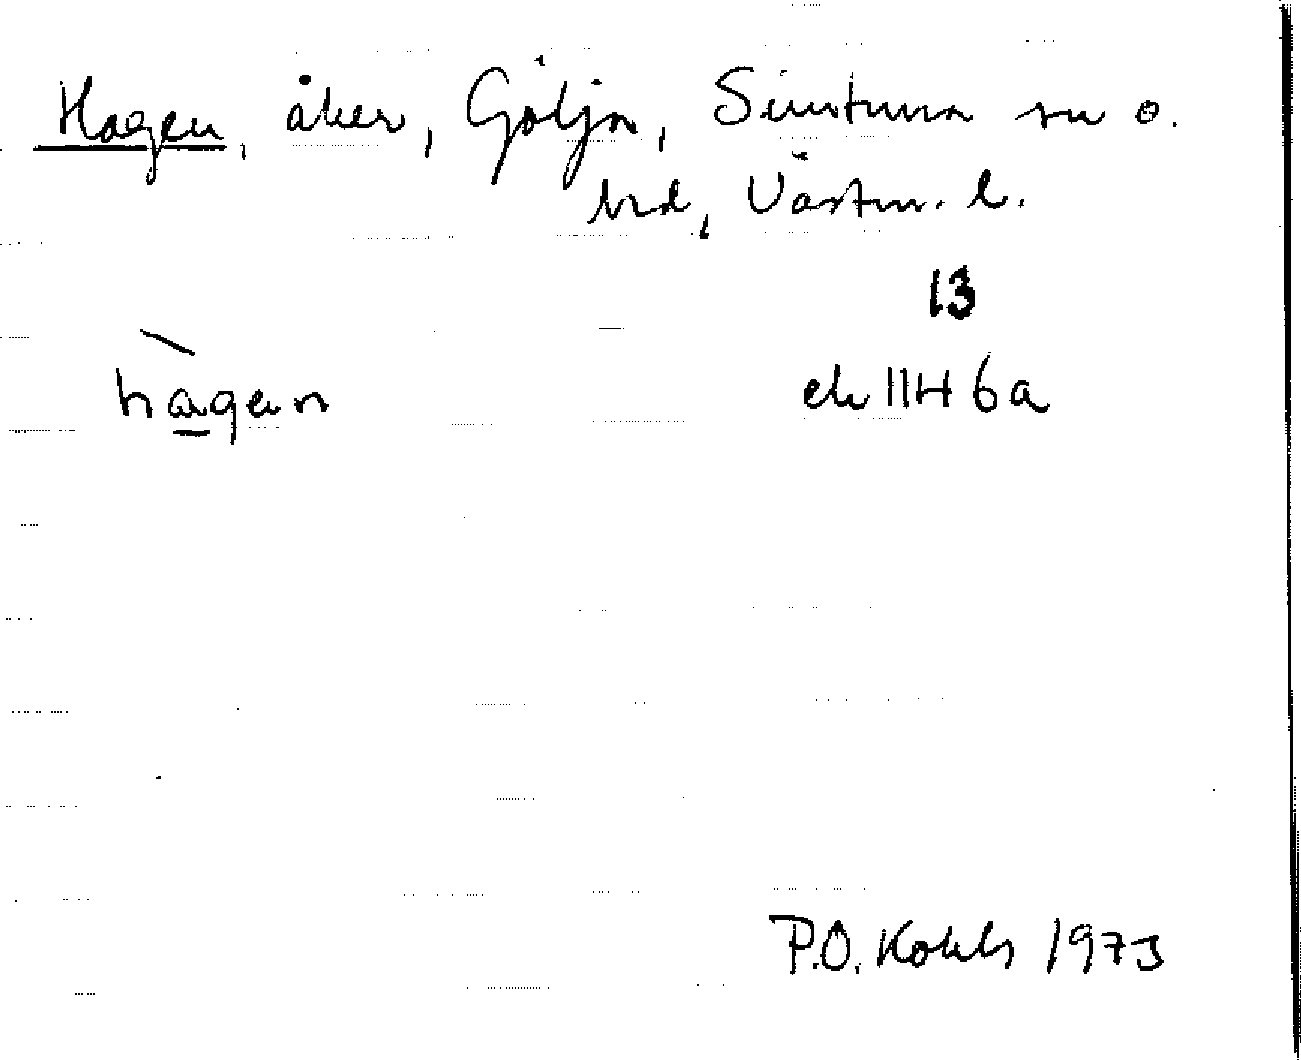 Hagen, åker, Gölja, Simtuna sn o.
hd, Västm. l.
13
hagen ek 11H 6a
P.O. Kohls 1973